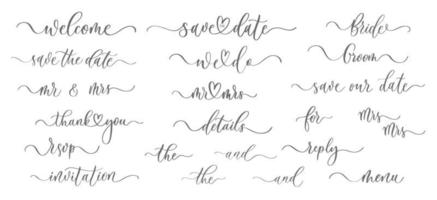 welcome
save the date
mr & mrs
thank you
rsvp
invitation
save date
we do
mr mrs
details
the and
the and
Bride
Groom
save our date
for Mrs
Mrs
reply
menu